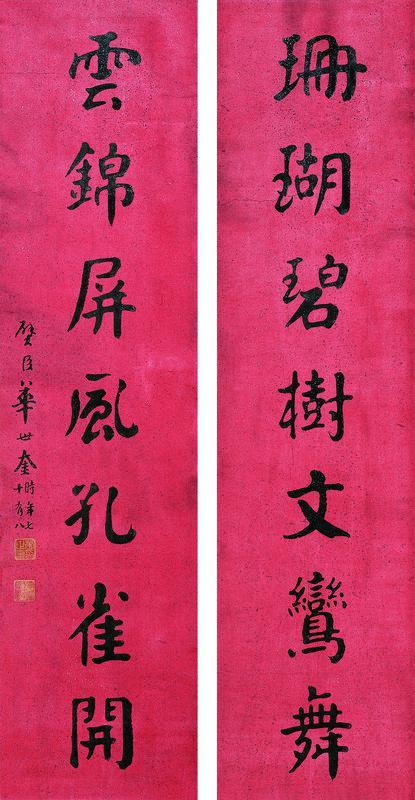 珊瑚碧樹文鸞舞
雲錦屏風孔雀開
璧臣華世奎時年七
十有八